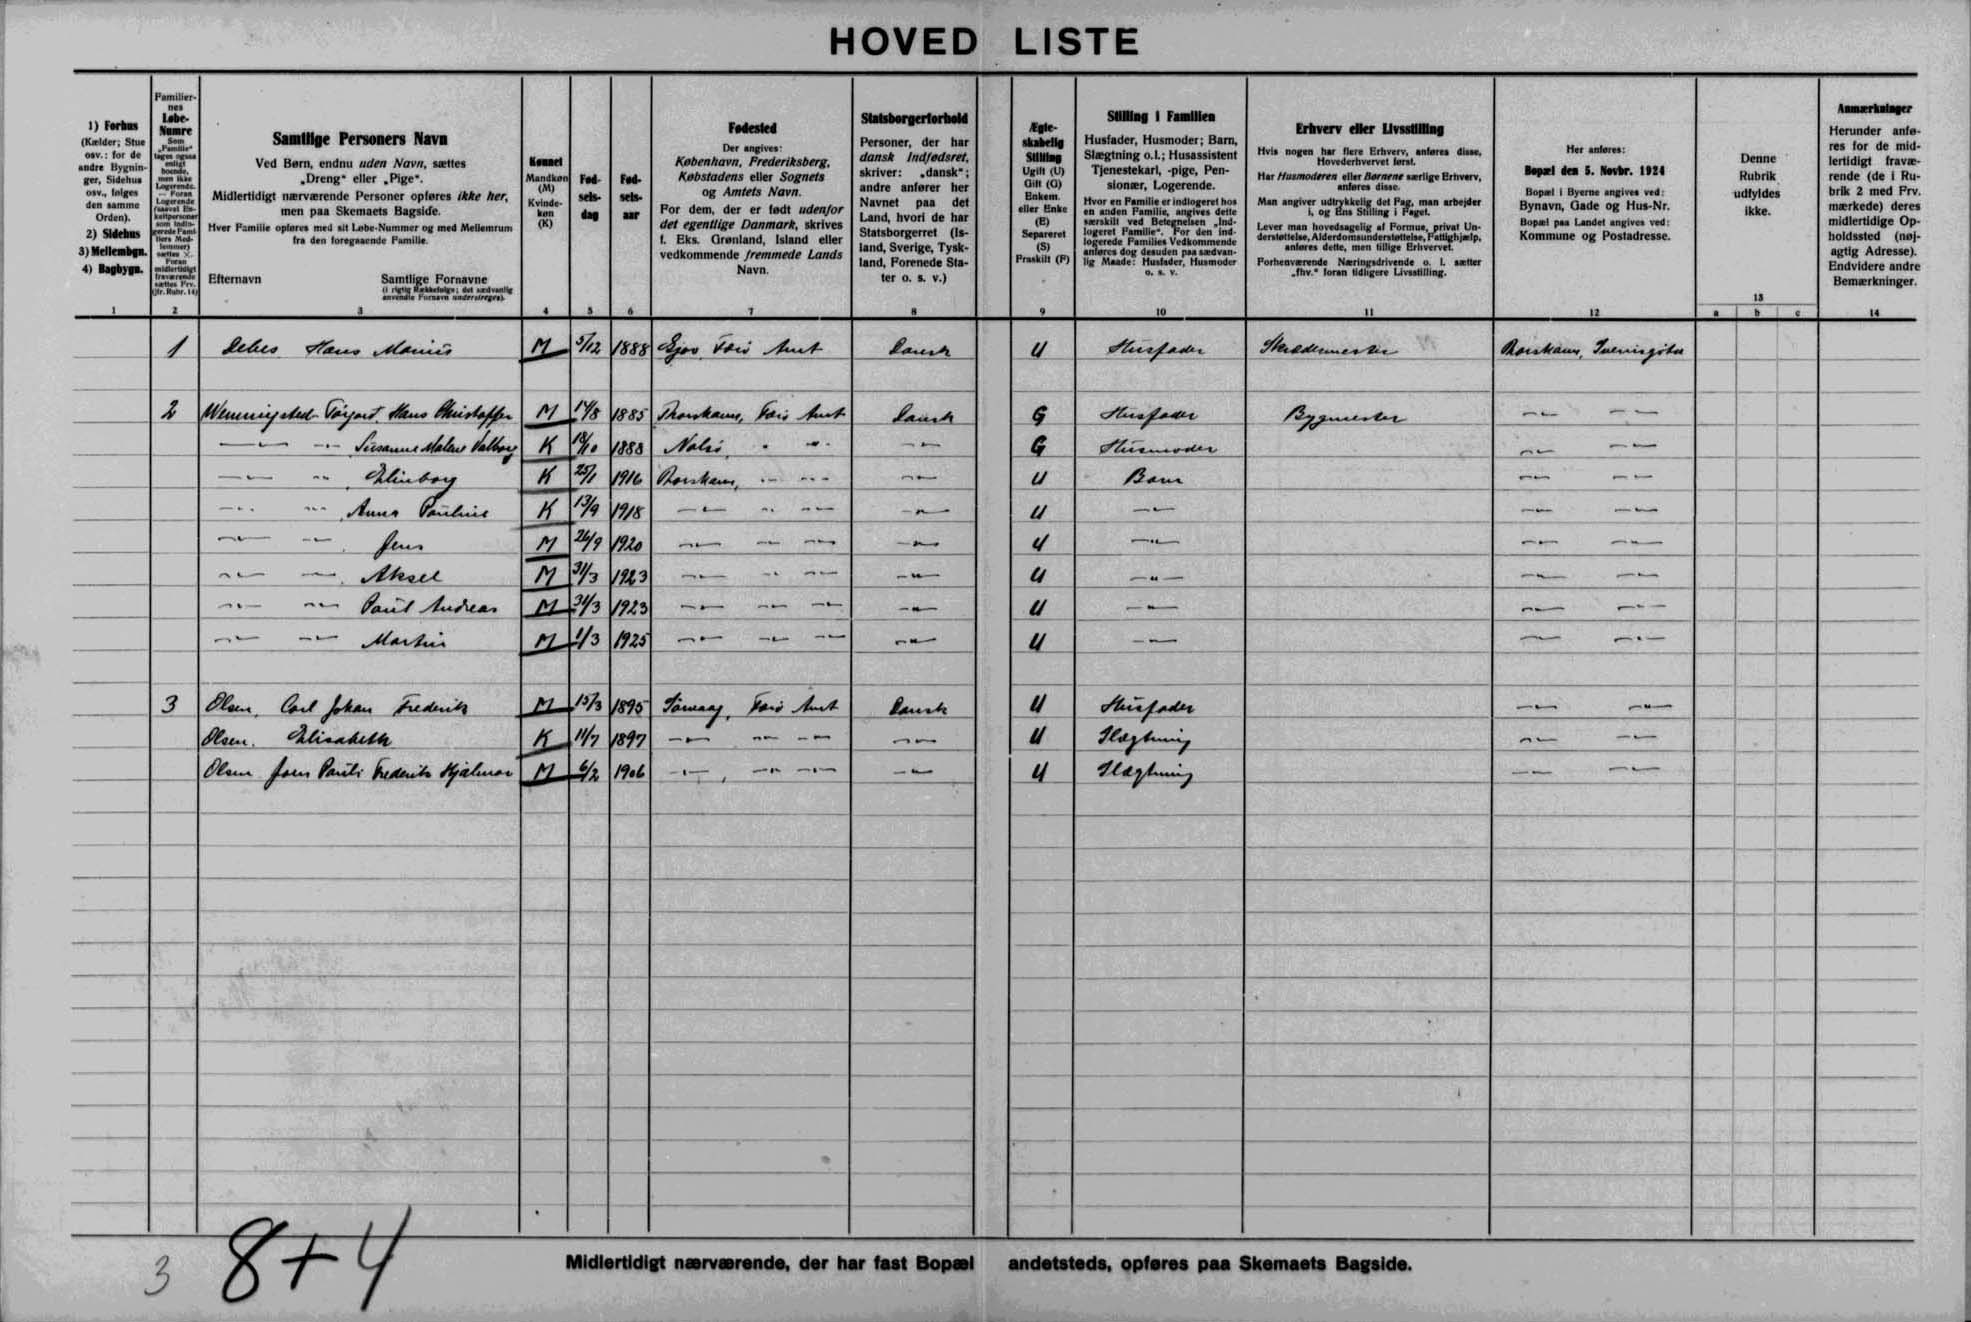 HOVED LISTE
1) Forhus
(Kælder; Stue
osv.: for de
andre Bygnin-
ger, Sidehus
osv., følges
den samme
Orden).
2) Sidehus
3) Mellembgn.
4) Bagbygn.
1
Familier-
nes
Løbe-
Numre
Som
„Familie“
tages ogsaa
enligt
boende,
men ikke
Logerende.
— Foran
Logerende
2
Samtlige Personers Navn
Ved Børn, endnu uden Navn, sættes
„Dreng“ eller „Pige“.
Midlertidigt nærværende Personer opføres ikke her,
men paa Skemaets Bagside.
Hver Familie opføres med sit Løbe-Nummer og med Mellemrum
fra den foregaaende Familie.
Efternavn
Samtlige Fornavne
(i rigtig Rækkefølge; det sædvanlig
anvendte Fornavn understreges).
3
Kønnet
Mandkøn
(M)
Kvinde-
køn
(K)
4
Fød-
sels-
dag
5
Fød-
sels-
aar
6
Fødested
Der angives:
København, Frederiksberg,
Købstadens eller Sognets
og Amtets Navn.
For dem, der er født udenfor
det egentlige Danmark, skrives
f. Eks. Grønland, Island eller
vedkommende fremmede Lands
Navn.
7
Statsborgerforhold
Personer, der har
dansk Indfødsret,
skriver: „dansk“;
andre anfører her
Navnet paa det
Land, hvori de har
Statsborgerret (Is-
land, Sverige, Tysk-
land, Forenede Sta-
ter o. s. v.)
8
Ægte-
skabelig
Stilling
Ugift (U)
Gift (G)
Enkem.
eller Enke
(E)
Separeret
(S)
Fraskilt (F)
9
Stilling i Familien
Husfader, Husmoder; Barn,
Slægtning o.l.; Husassistent
Tjenestekarl, -pige, Pen-
sionær, Logerende.
Hvor en Familie er indlogeret hos
en anden Familie, angives dette
særskilt ved Betegnelsen „Ind-
logeret Familie“. For den ind-
logerede Families Vedkommende
anføres dog desuden paa sædvan-
lig Maade: Husfader, Husmoder
o. s. v.
10
Erhverv eller Livsstilling
Hvis nogen har flere Erhverv, anføres disse,
Hovederhvervet først.
Har Husmoderen eller Børnene særlige Erhverv,
anføres disse.
Man angiver udtrykkelig det Fag, man arbejder
i, og Ens Stilling i Faget.
Lever man hovedsagelig af Formue, privat Un-
derstøttelse, Alderdomsunderstøttelse, Fattighjælp,
anføres dette, men tillige Erhvervet.
Forhenværende Næringsdrivende o. l. sætter
„fhv.“ foran tidligere Livsstilling.
11
Her anføres:
Bopæl den 5. Novbr. 1924
Bopæl i Byerne angives ved:
Bynavn, Gade og Hus-Nr.
Bopæl paa Landet angives ved:
Kommune og Postadresse.
12
Denne
Rubrik
udfyldes
ikke.
13
a b c
Anmærkninger
Herunder anfø-
res for de mid-
lertidigt fravæ-
rende (de i Ru-
brik 2 med Frv.
mærkede) deres
midlertidige Op-
holdssted (nøj-
agtig Adresse).
Endvidere andre
Bemærkninger.
14
1 Debes Hans Marius M 5/12 1888 Gjov, Færø Amt Dansk U Husfader Skrædermester Thorshavn,
2 Wenningsted-Torgard, Hans Christoffer M 14/8 1885 Thorshavn, Færø Amt Dansk G Husfader Bygmester —"— —"—
—"— —"— Susanne Malene Valborg K 18/10 1888 Nolsö, " —"— —"— G Husmoder —"— —"—
—"— —"—, Elinborg K 25/1 1916 Thorshavn, —"— —"— —"— U Barn —"— —"—
—"— —"—, Anna Pauline K 13/9 1918 —"— —"— —"— —"— U —"— —"— —"—
—"— —"—, Jens M 26/9 1920 —"— —"— —"— —"— U —"— —"— —"—
—"— —"—, Aksel M 31/3 1923 —"— —"— —"— —"— U —"— —"— —"—
—"— —"— Poul Andreas M 31/3 1923 —"— —"— —"— —"— U —"— —"— —"—
—"— —"— Martin M 1/3 1925 —"— —"— —"— —"— U —"— —"— —"—
3 Olsen, Carl Johan Frederik M 15/3 1895 Sørvaag, Færø Amt Dansk U Husfader —"— —"—
Olsen, Elisabeth K 11/7 1897 —"— —"— —"— —"— U Slægtning —"— —"—
Olsen Joen Pauli Frederik Hjalmar M 6/2 1906 —"—, —"— —"— —"— U Slægtning —"— —"—
3 8+4
Midlertidigt nærværende, der har fast Bopæl andetsteds, opføres paa Skemaets Bagside.